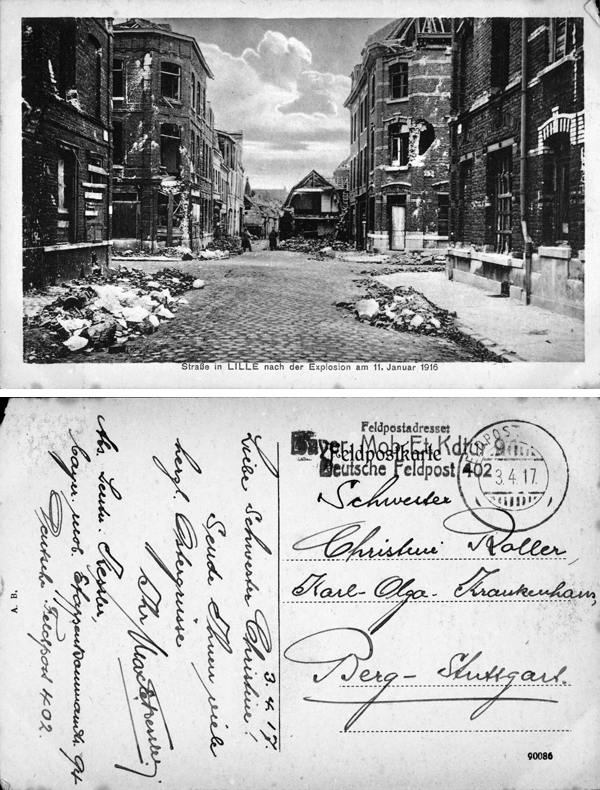 Straße in LILLE nach der Explosion am 11. Januar 1916
Feldpostadresset
Bayer. Mob. Et. Kdtur. 9
Feldpostkarte
Deutsche Feldpost 402
FELDPOST
3.4.17.
Schwester
Christine Roller,
Karl-Olga-Krankenhaus,
Berg-Stuttgart.
90086
3.4.17.
Liebe Schwester Christine!
Sende Ihnen viele
herzl. Ostergrüsse
Ihr Max
Abs. Leutn.
bayr. mob. Etappenkommand.
Deutsche Feldpost 402.
A. B.